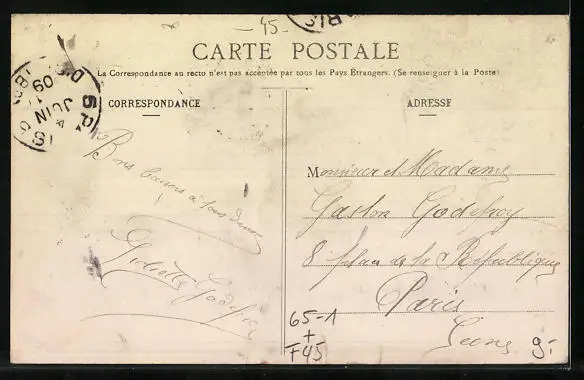 -45-
CARTE POSTALE
La Correspondance au recto n'est pas acceptée par tous les Pays Étrangers. (Se renseigner à la Poste)
CORRESPONDANCE
ADRESSE
5 P
09
JUIN
Bons baisers à tous deux
Juliette Godefroy
Monsieur et Madame
Gaston Godefroy
8 place de la République
Paris
Seine
65-1
+
F45
g.